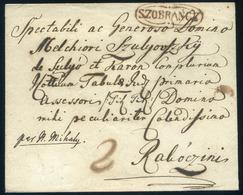 SZOBRANCZ
Spectabili ac Generoso Domino
Melchiori Szulyovszky
de Sulyó et Karon Complurium
Tabulæ Jud primaria
Assessori Domino
mihi peculiariter Colendissimo
per N. Mihaly
2
Rakóczini